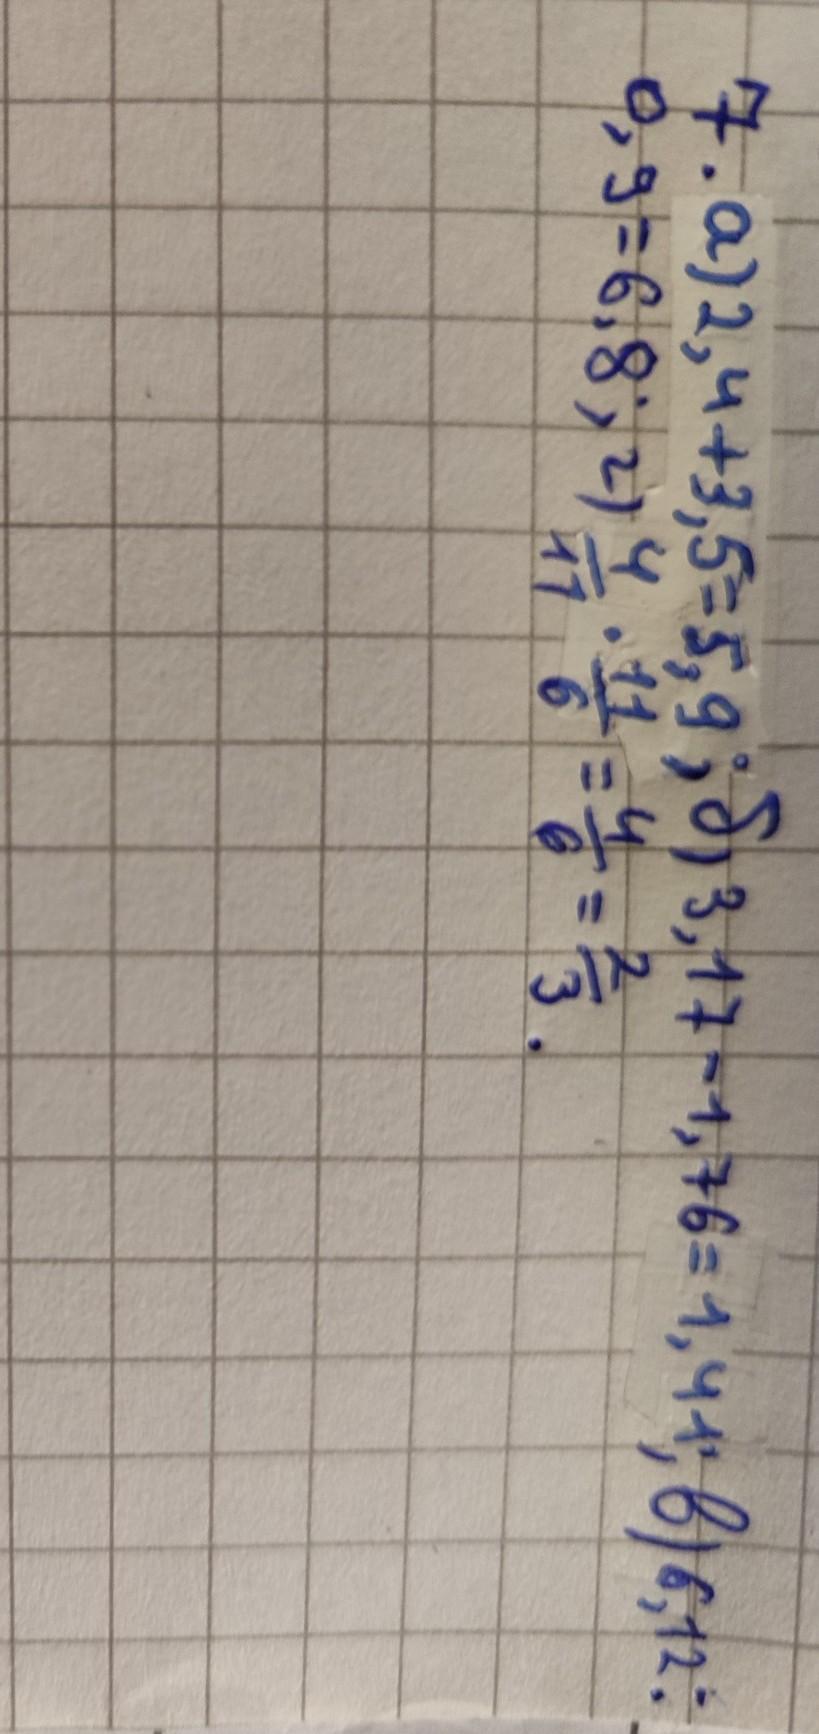 7. а) 2,4+3,5=5,9; б) 3,17-1,76=1,41; в) 6,12:
0,9=6,8; г) 4/11 · 11/6 = 4/6 = 2/3.